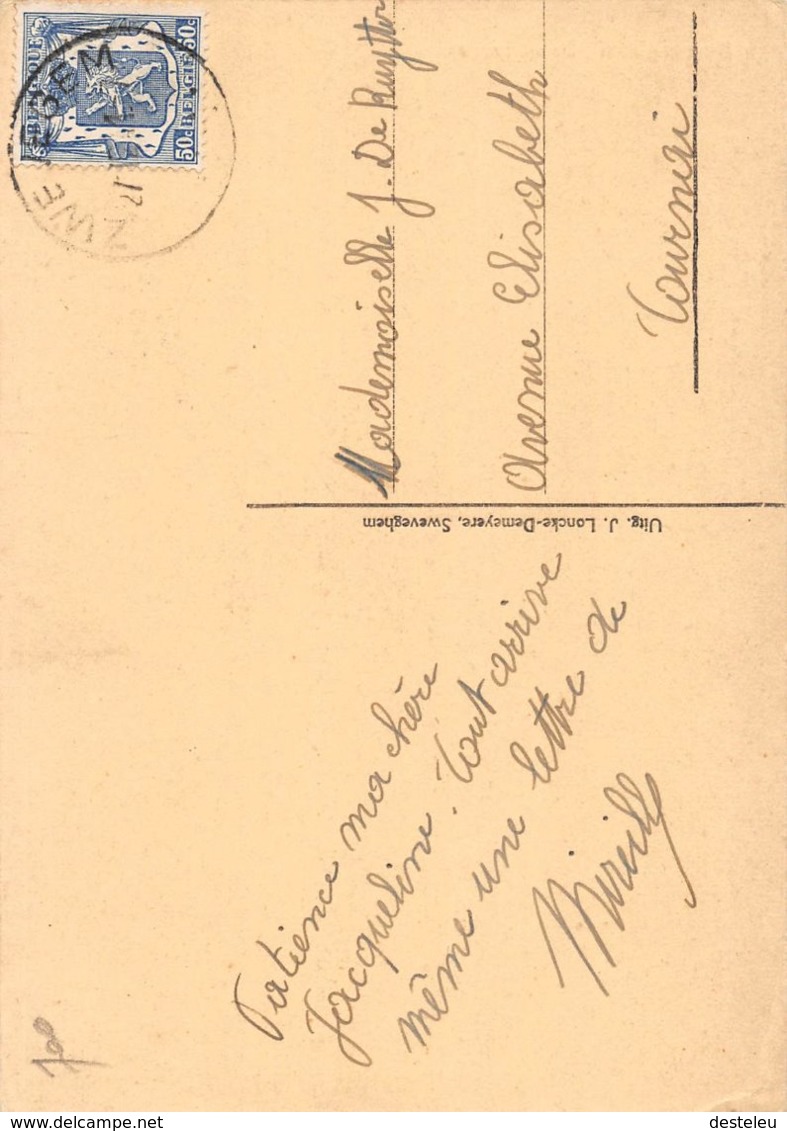 BELGIQUE 50c
50c BELGIE
ZWEVEGEM
Mademoiselle J. De Ruytter
Avenue Elisabeth
Tournai
Uitg. J. Loncke-Demeyere, Sweveghem
Patience ma chère
Jacqueline. Tout arrive
même une lettre de
Mireille
desteleu